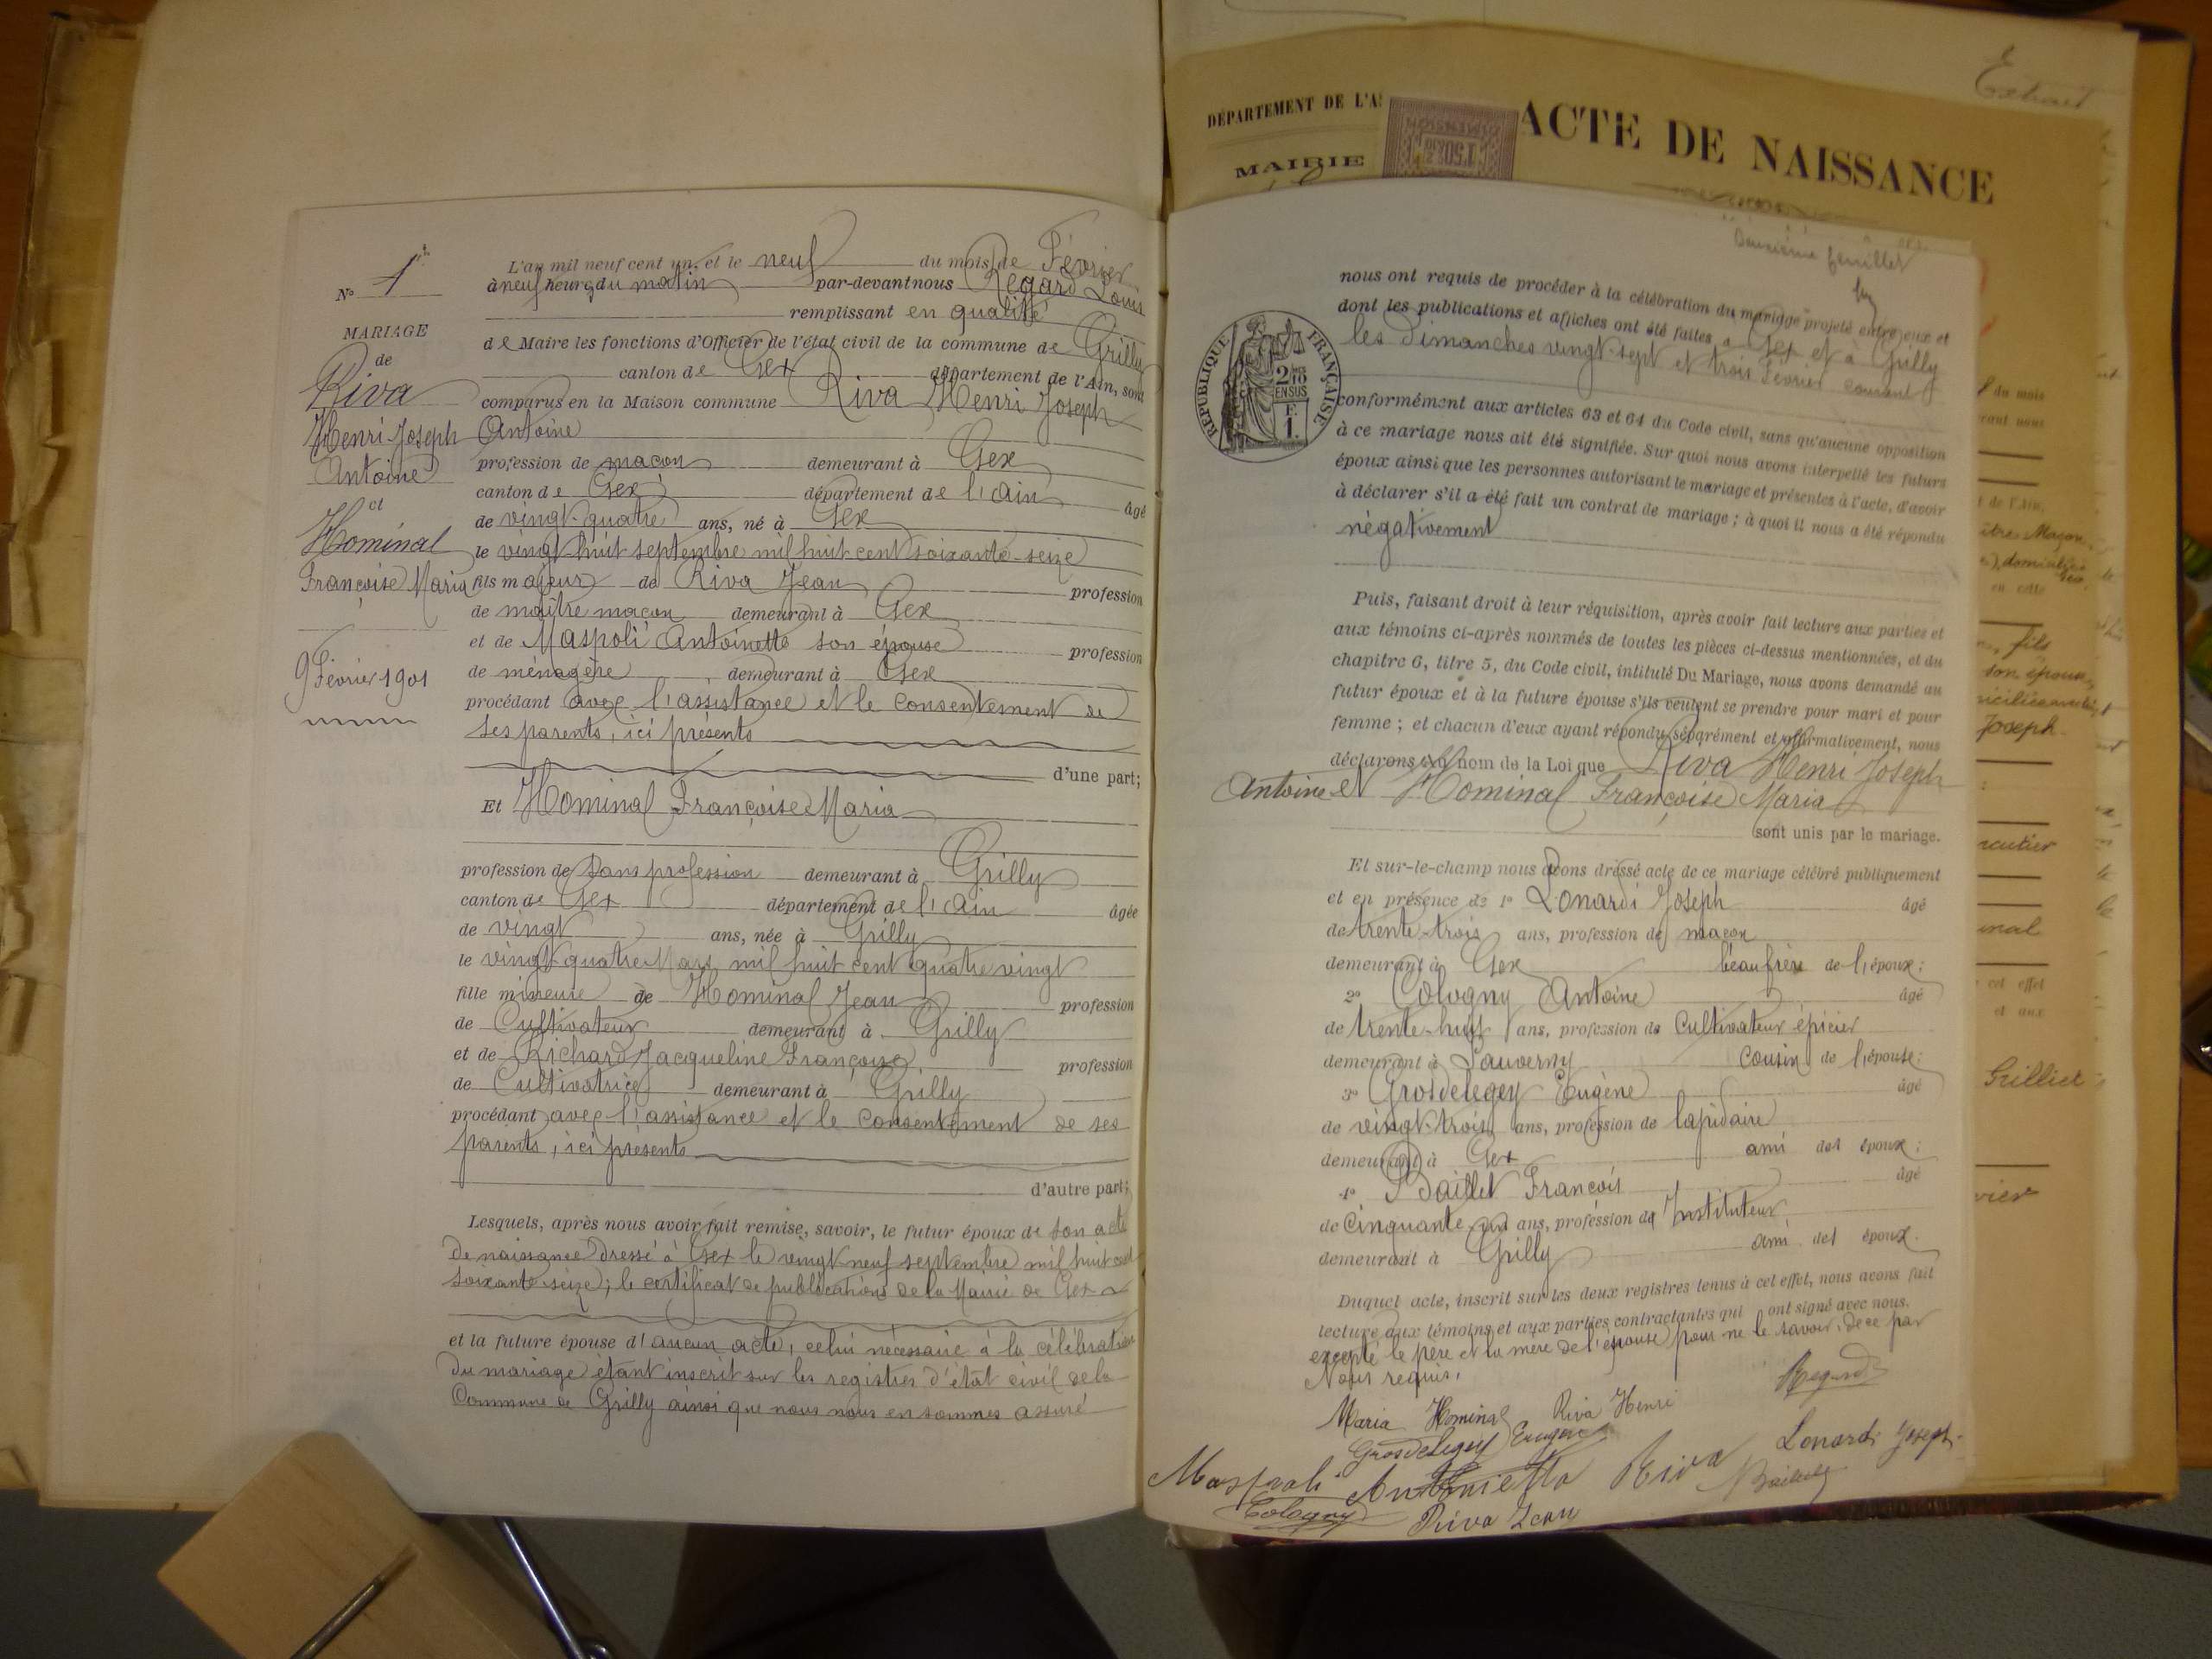 N° 1er
MARIAGE
de
Riva
Henri Joseph
Antoine
et
Hominal
Françoise Maria
9 Février 1901
L'an mil neuf cent un, et le neuf du mois de Février
à neuf heures du matin par-devant nous Regard Louis
remplissant en qualité
de Maire les fonctions d'Officier de l'état civil de la commune de Grilly
canton de Gex département de l'Ain, sont
comparus en la Maison commune Riva Henri Joseph
Antoine
profession de maçon demeurant à Gex
canton de Gex département de l'Ain âgé
de vingt-quatre ans, né à Gex
le vingt-huit septembre mil huit cent soixante-seize
fils majeur de Riva Jean profession
de maître maçon demeurant à Gex
et de Maspoli Antoinette son épouse profession
de ménagère demeurant à Gex
procédant avec l'assistance et le consentement de
ses parents, ici présents
d'une part;
Et Hominal Françoise Maria
profession de Sans profession demeurant à Grilly
canton de Gex département de l'Ain âgée
de vingt ans, née à Grilly
le vingt-quatre Mars mil huit cent quatre vingt
fille mineure de Hominal Jean profession
de Cultivateur demeurant à Grilly
et de Richard Jacqueline Françoise profession
de Cultivatrice demeurant à Grilly
procédant avec l'assistance et le consentement de ses
parents, ici présents
d'autre part;
Lesquels, après nous avoir fait remise, savoir, le futur époux de son acte
de naissance dressé à Gex le vingt neuf septembre mil huit cent
soixante-seize; le certificat de publications de la Mairie de Gex
et la future épouse d'aucun acte, celui nécessaire à la célébration
du mariage étant inscrit sur les registres d'état civil de la
Commune de Grilly ainsi que nous nous en sommes assuré
Extrait
DÉPARTEMENT DE L'A
MAIRIE
ACTE DE NAISSANCE
Deuxième feuillet
nous ont requis de procéder à la célébration du mariage projeté entre eux et
dont les publications et affiches ont été faites à Gex et à Grilly
les Dimanches vingt-sept et trois Février courant
RÉPUBLIQUE FRANÇAISE
conformément aux articles 63 et 64 du Code civil, sans qu'aucune opposition
à ce mariage nous ait été signifiée. Sur quoi nous avons interpellé les futurs
époux ainsi que les personnes autorisant le mariage et présentes à l'acte, d'avoir
à déclarer s'il a été fait un contrat de mariage; à quoi il nous a été répondu
négativement
Puis, faisant droit à leur réquisition, après avoir fait lecture aux parties et
aux témoins ci-après nommés de toutes les pièces ci-dessus mentionnées, et du
chapitre 6, titre 5, du Code civil, intitulé Du Mariage, nous avons demandé au
futur époux et à la future épouse s'ils veulent se prendre pour mari et pour
femme; et chacun d'eux ayant répondu séparément et affirmativement, nous
déclarons au nom de la Loi que Riva Henri Joseph
Antoine et Hominal Françoise Maria
sont unis par le mariage.
Et sur-le-champ nous avons dressé acte de ce mariage célébré publiquement
et en présence de 1° Lonardi Joseph âgé
de trente-trois ans, profession de maçon
demeurant à Gex beau frère de l'époux;
2° Cologny Antoine âgé
de trente-huit ans, profession de Cultivateur épicier
demeurant à Sauverny cousin de l'épouse;
3° Grosdelegey Eugène âgé
de vingt-trois ans, profession de lapidaire
demeurant à Gex ami des époux;
4° Baillet François âgé
de Cinquante-un ans, profession de Instituteur
demeurant à Grilly ami des époux.
Duquel acte, inscrit sur les deux registres tenus à cet effet, nous avons fait
lecture aux témoins et aux parties contractantes qui ont signé avec nous.
excepté le père et la mère de l'épouse pour ne le savoir, de ce par
Nous requis.
Regard
Maria Hominal Riva Henri
Grosdelegey Eugène Lonardi Joseph
Maspoli Antonietta Riva
Cologny Riva Jean
du mois
t de l'Ain,
ître Maçon
en cette
fils
son épouse,
Joseph
cet effet
et aux
Grilliet